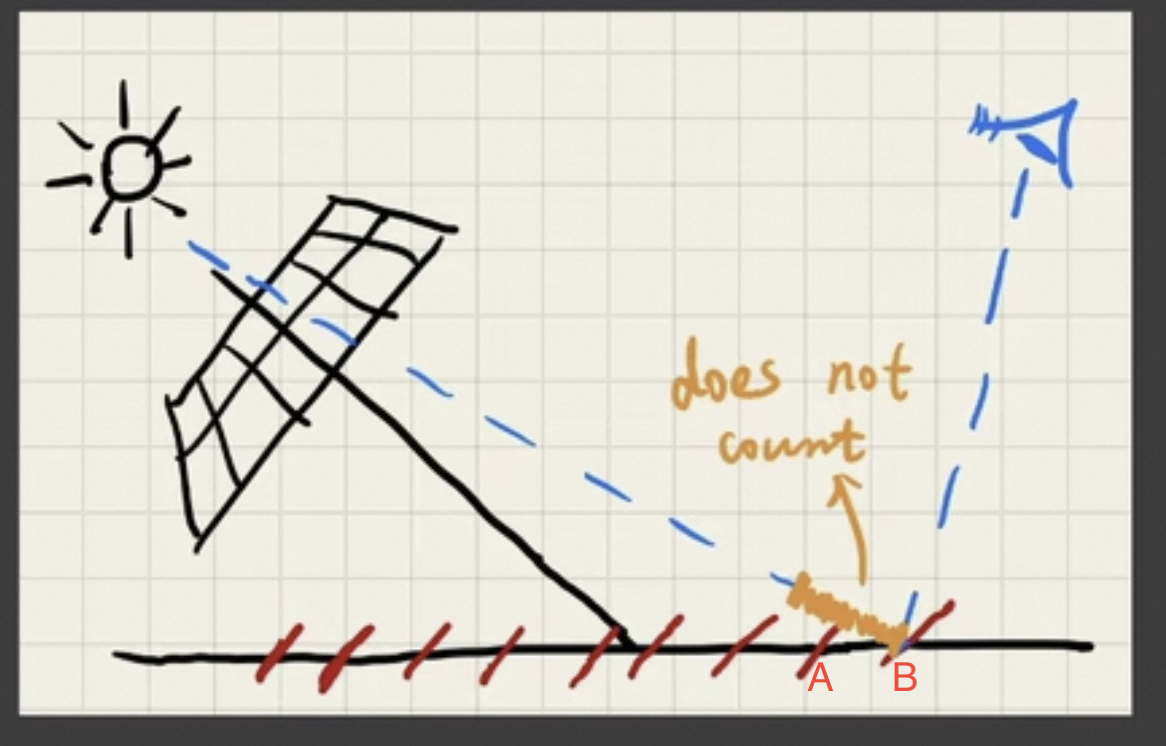 does not
count
A B